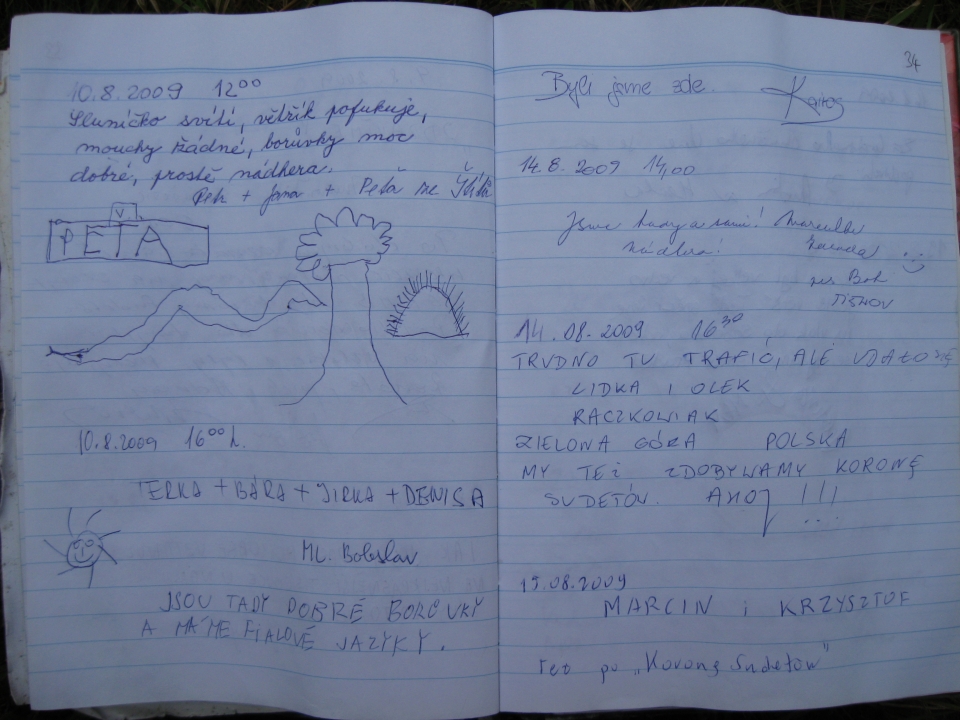 10.8.2009 12⁰⁰
Sluníčko svítí, větřík pofukuje,
mouchy žádné, borůvky moc
dobré, prostě nádhera.
Petr + Jana + Péťa ze
V.
PÉŤA
10.8.2009 16⁰⁰ h.
TERKA + BÁRA + JIRKA + DENISA
Ml. Boleslav
JSOU TADY DOBRÉ BORŮVKY
A MÁME FIALOVÉ JAZYKY.
34
Byli jsme zde.
14.8.2009 14,00
Jsme tady a sami!
nádhera!
14.08.2009 16³⁰
TRUDNO TU TRAFIĆ, ALE
LIDKA I OLEK
RACZKOWIAK
ZIELONA GÓRA POLSKA
MY TEŻ ZDOBYWAMY KORONĘ
SUDETÓW. AHOJ !!!
15.08.2009
MARCIN i KRZYSZTOF
też po „Koronę Sudetów"